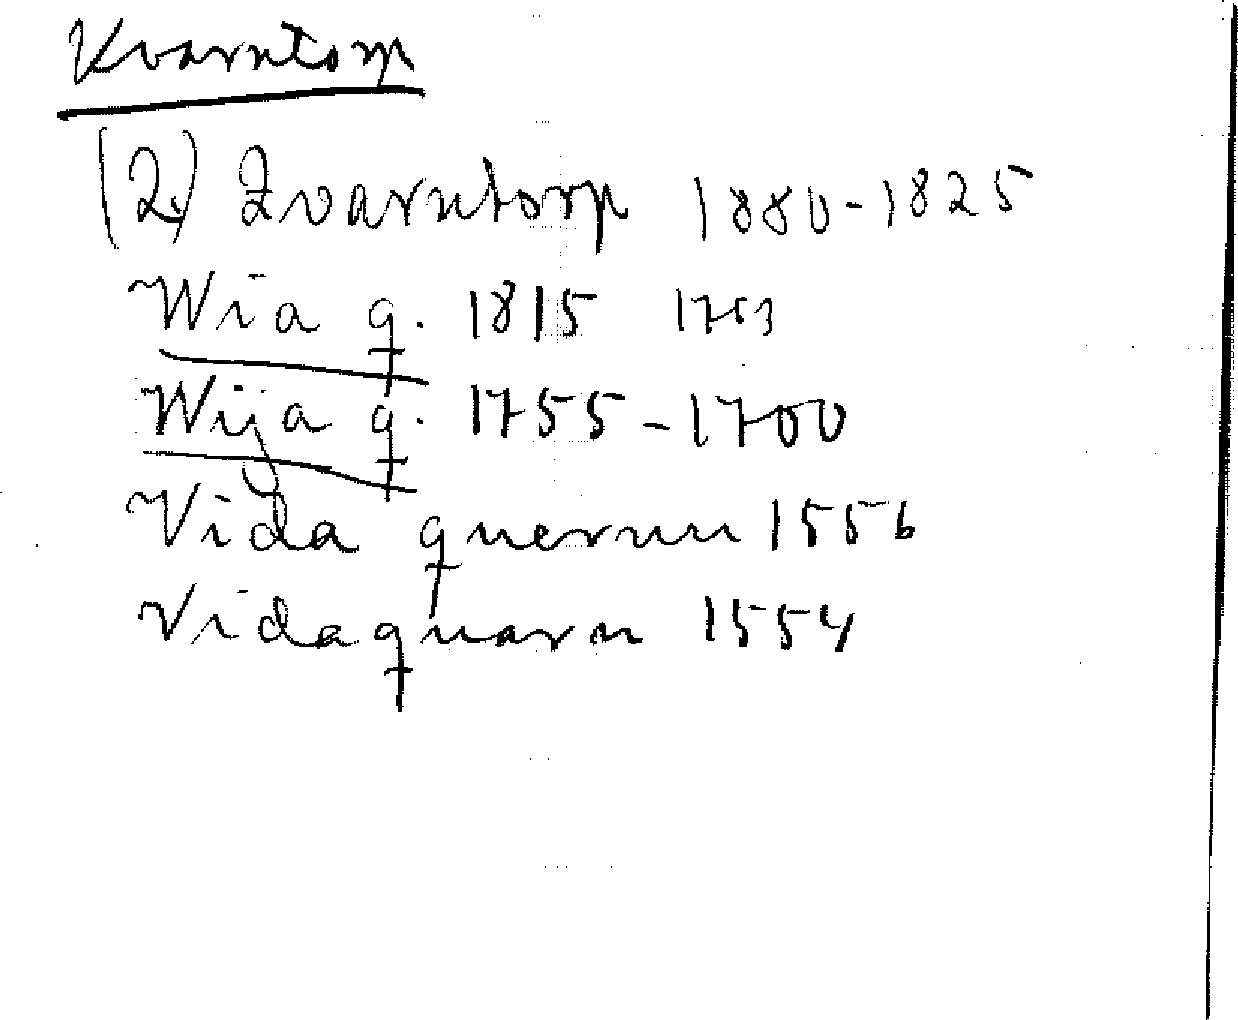 Kvarntorp
(2) Qvarntorp 1880-1825
Wia q. 1815 1763
Wija q. 1755-1700
Vida quernn 1556
Vidaquarn 1554